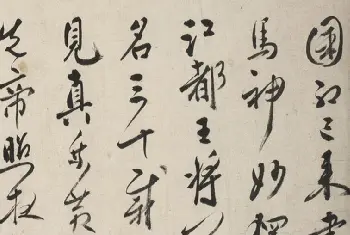 國初已來畫
馬神妙獨
江都王將
名三十載
見真乘黃
先帝照夜